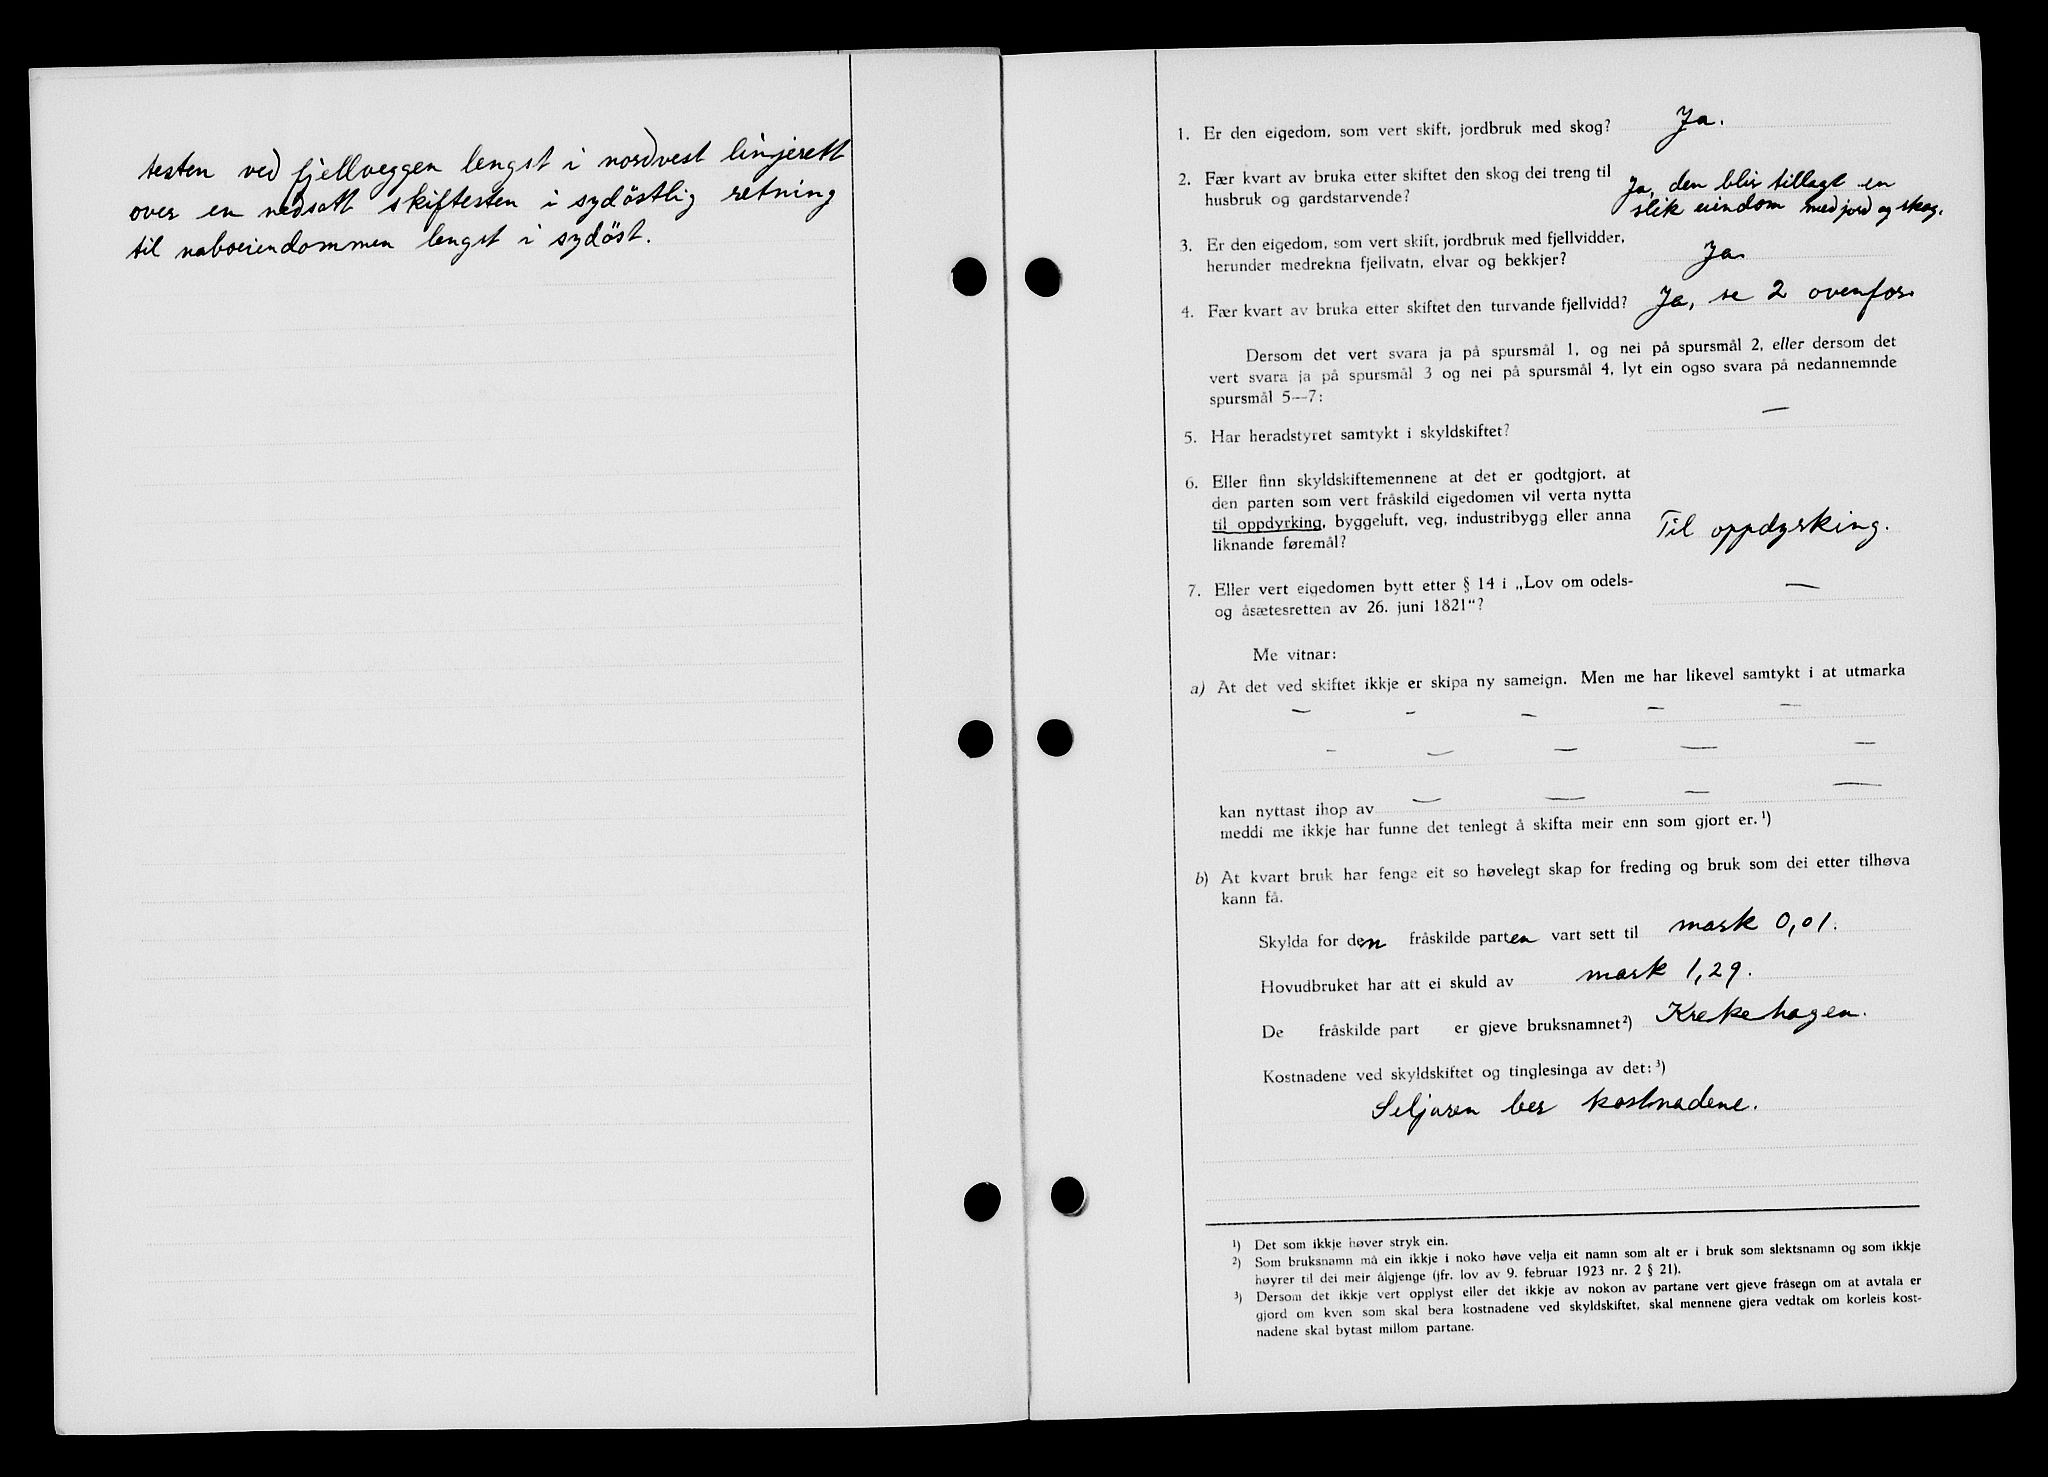 testen ved fjellveggen lengst i nordvest linjerett
over en nedsatt skiftesten i sydöstlig retning
til naboeiendommen lengst i sydöst.
1. Er den eigedom, som vert skift, jordbruk med skog? Ja.
2. Fær kvart av bruka etter skiftet den skog dei treng til
husbruk og gardstarvende?
Ja, den blir tillagt en
slik eiendom med jord og skog.
3. Er den eigedom, som vert skift, jordbruk med fjellvidder,
herunder medrekna fjellvatn, elvar og bekkjer? Ja
4. Fær kvart av bruka etter skiftet den turvande fjellvidd? Ja, se 2 ovenfor.
Dersom det vert svara ja på spursmål 1, og nei på spursmål 2, eller dersom det
vert svara ja på spursmål 3 og nei på spursmål 4, lyt ein ogso svara på nedannemnde
spursmål 5—7:
5. Har heradstyret samtykt i skyldskiftet? —
6. Eller finn skyldskiftemennene at det er godtgjort, at
den parten som vert fråskild eigedomen vil verta nytta
til oppdyrking, byggeluft, veg, industribygg eller anna
liknande føremål?
Til oppdyrking.
7. Eller vert eigedomen bytt etter § 14 i „Lov om odels-
og åsætesretten av 26. juni 1821“? —
Me vitnar:
a) At det ved skiftet ikkje er skipa ny sameign. Men me har likevel samtykt i at utmarka
— — — — —
— — — — —
kan nyttast ihop av — — — —
meddi me ikkje har funne det tenlegt å skifta meir enn som gjort er.¹)
b) At kvart bruk har fenge eit so høvelegt skap for freding og bruk som dei etter tilhøva
kann få.
Skylda for den fråskilde parten vart sett til mark 0,01.
Hovudbruket har att ei skuld av mark 1,29.
De fråskilde part er gjeve bruksnamnet²) Krekehagen.
Kostnadene ved skyldskiftet og tinglesinga av det:³)
Seljaren ber kostnadene.
¹) Det som ikkje høver stryk ein.
²) Som bruksnamn må ein ikkje i noko høve velja eit namn som alt er i bruk som slektsnamn og som ikkje
høyrer til dei meir ålgjenge (jfr. lov av 9. februar 1923 nr. 2 § 21).
³) Dersom det ikkje vert opplyst eller det ikkje av nokon av partane vert gjeve fråsegn om at avtala er
gjord om kven som skal bera kostnadene ved skyldskiftet, skal mennene gjera vedtak om korleis kost-
nadene skal bytast millom partane.